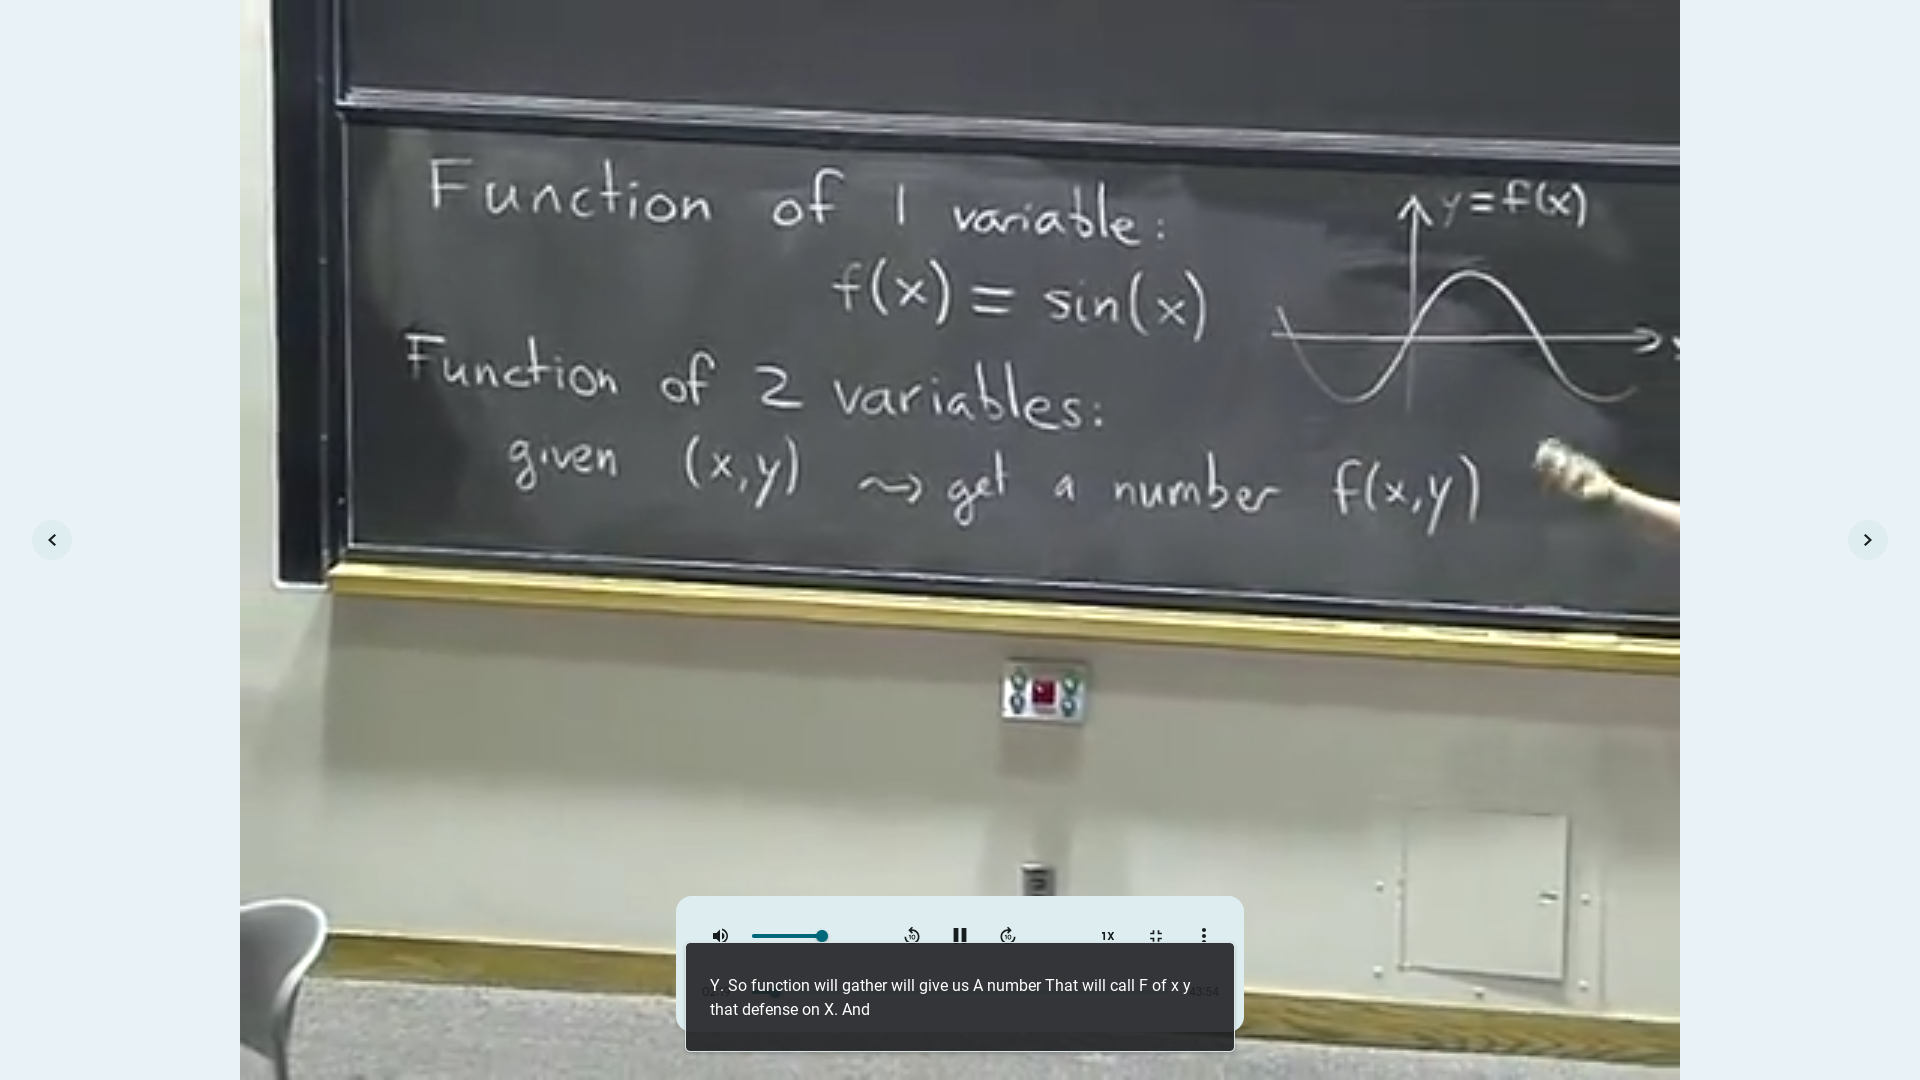 Function of 1 variable:
y = f(x)
f(x) = sin(x)
Function of 2 variables:
given (x,y) ⤳ get a number f(x,y)
10
10
1X
Y. So function will gather will give us A number That will call F of x y
that defense on X. And
43:54